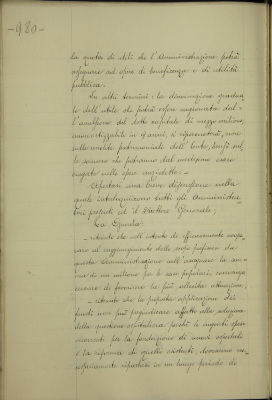 -980-
la quota di utili che l'Amministrazione potrà
assegnare ad opere di beneficenza e di utilità
pubblica.
In altri termini: la diminuzione gradua-
le dell'utile che potrà essere cagionata dal-
l'esercizio del detto capitale di mezzo milione,
ammortizzabile in anni, si ripercuoterà, non
sulle rendite patrimoniali dell'Ente, bensì sul-
le somme che potranno dal medesimo essere
erogate nelle opere suddette.-
Apertasi una breve discussione nella
quale interloquiscono tutti gli Amministra-
tori presenti ed il Direttore Generale;
La Giunta
- ritenuto che nell'intento di efficacemente coope-
rare al raggiungimento dello scopo prefissosi da
questa Amministrazione nell'assegnare la som-
ma di un milione per le case popolari, convenga
cercare di favorirne la più sollecita attuazione;
- ritenuto che la proposta applicazione dei
fondi non può pregiudicare affatto la soluzione
della questione ospitaliera perchè le ingenti spese
necessarie per la fondazione di nuovi ospedali
e la riforma di quelli esistenti dovranno ne-
cessariamente ripartirsi in un lungo periodo di